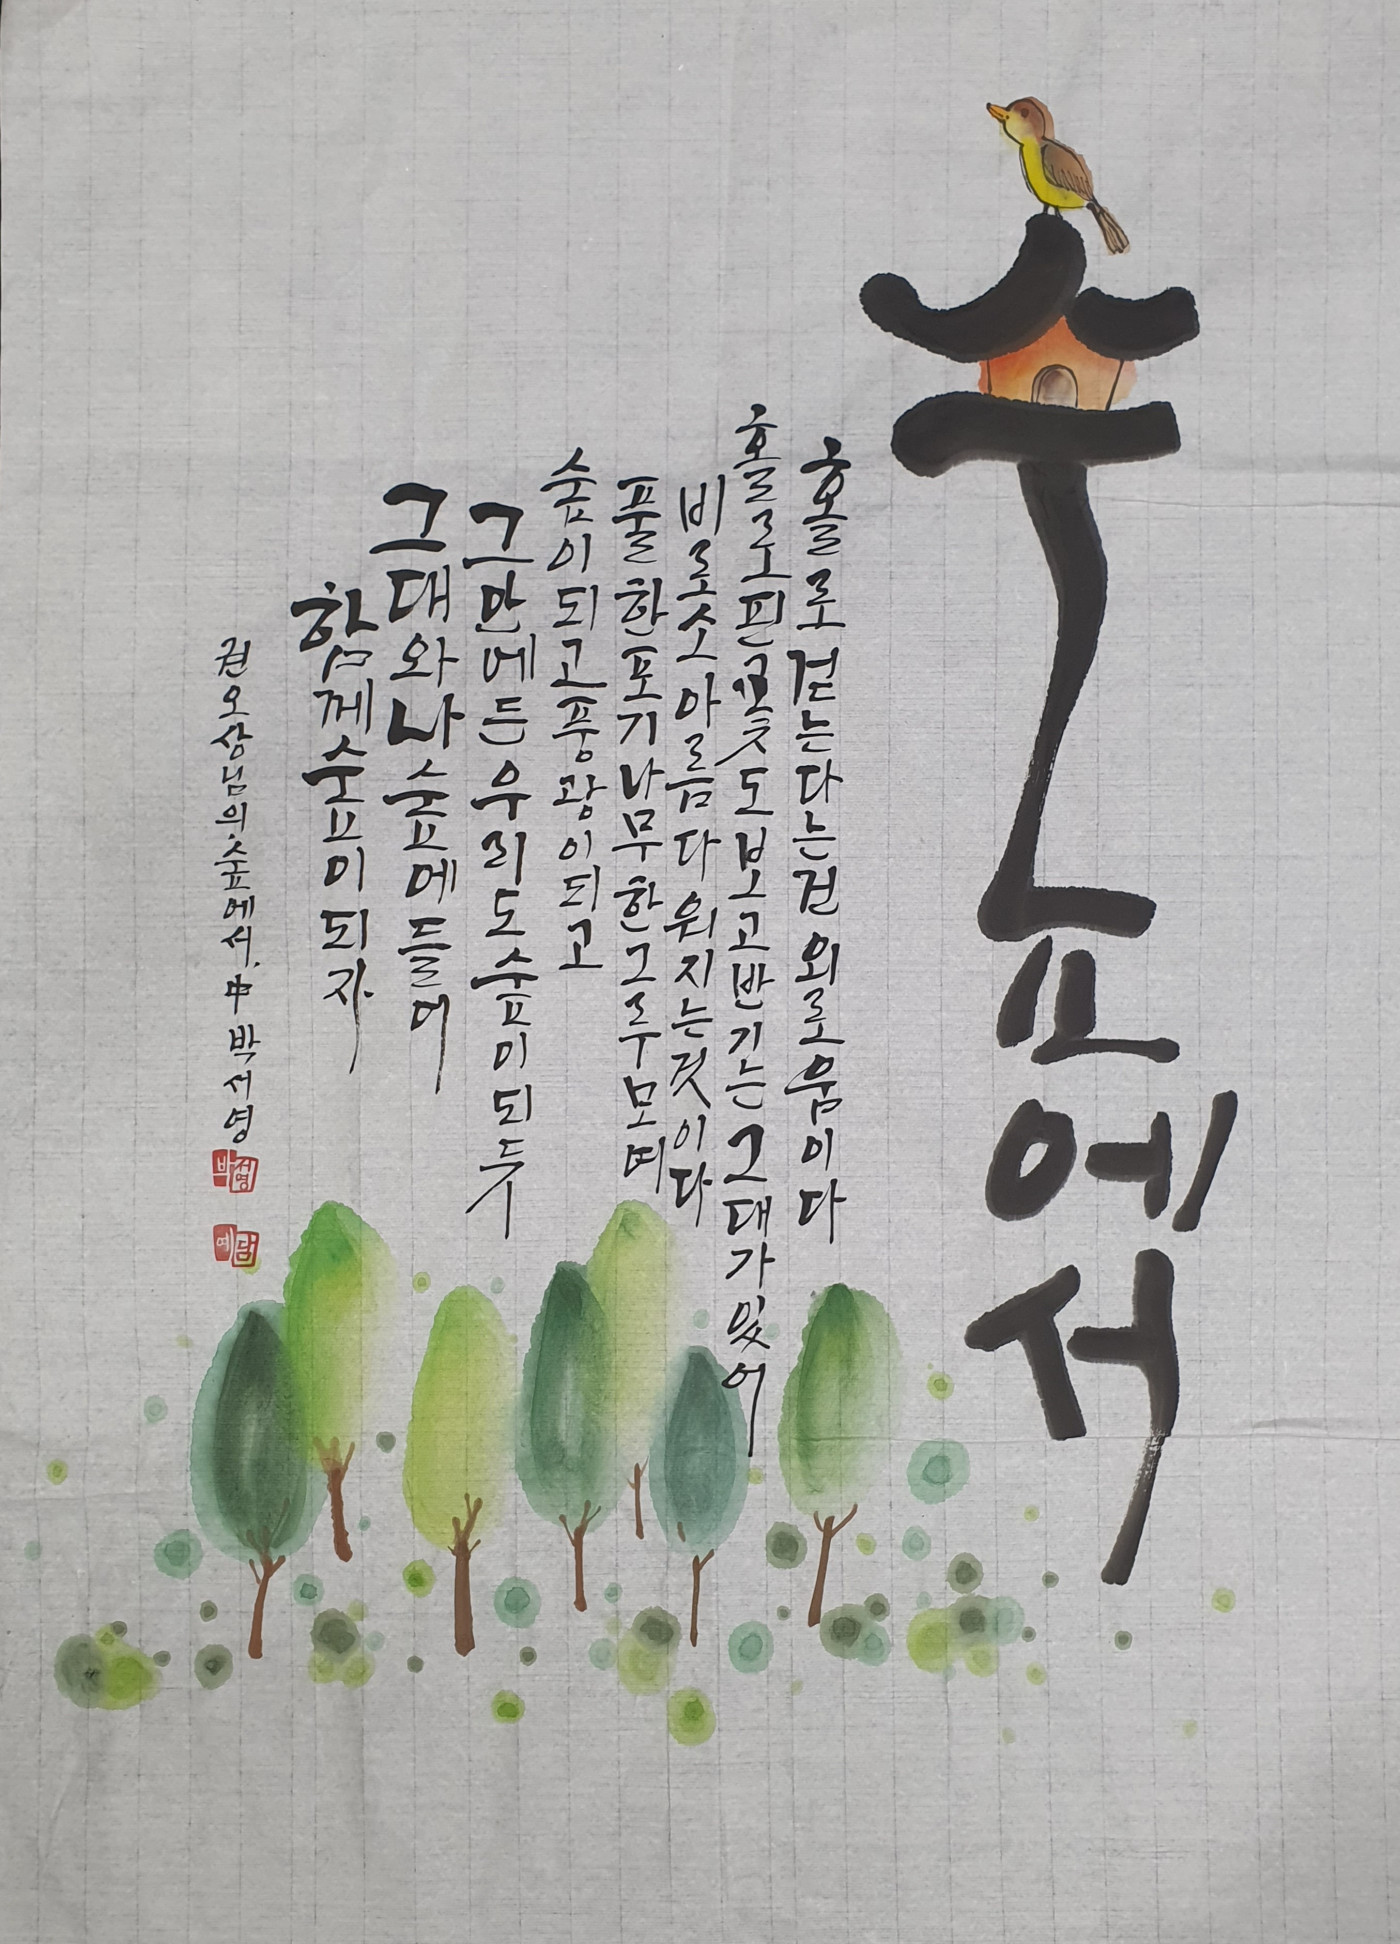 숲에서
홀로 걷는다는 건 외로움이다
홀로 핀 꽃도 보고 반기는 그대가 있어
비로소 아름다워지는 것이다
풀 한 포기 나무 한 그루 모여
숲이 되고 풍광이 되고
그 안에 든 우리도 숲이 되듯
그대와 나 숲에 들어
함께 숲이 되자
권오상님의 숲에서, 中 박서영
박서영
예담